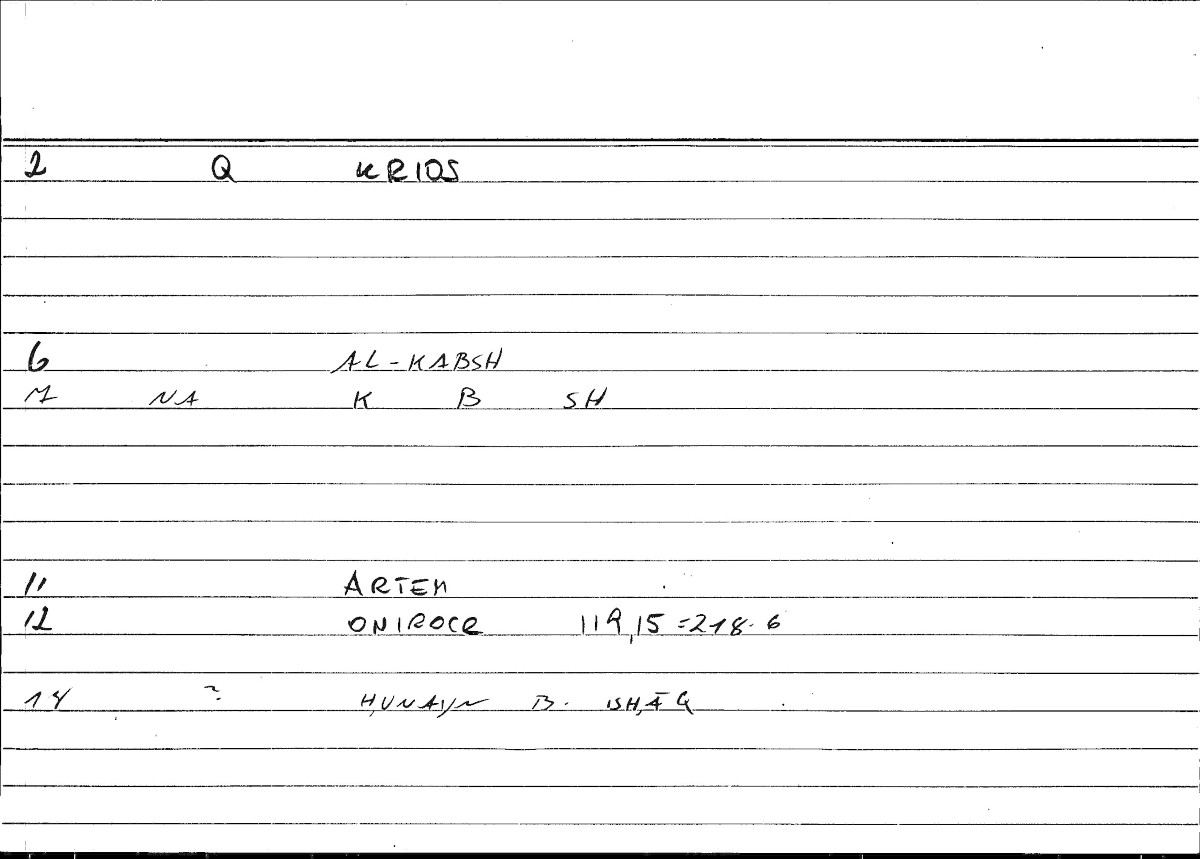 2 Q KRIOS
6 AL-KABSH
7 NA K B SH
11 ARTEM
12 ONIROCR 119,15 = 218.6
14 ? ḤUNAYN B. ISḤĀQ